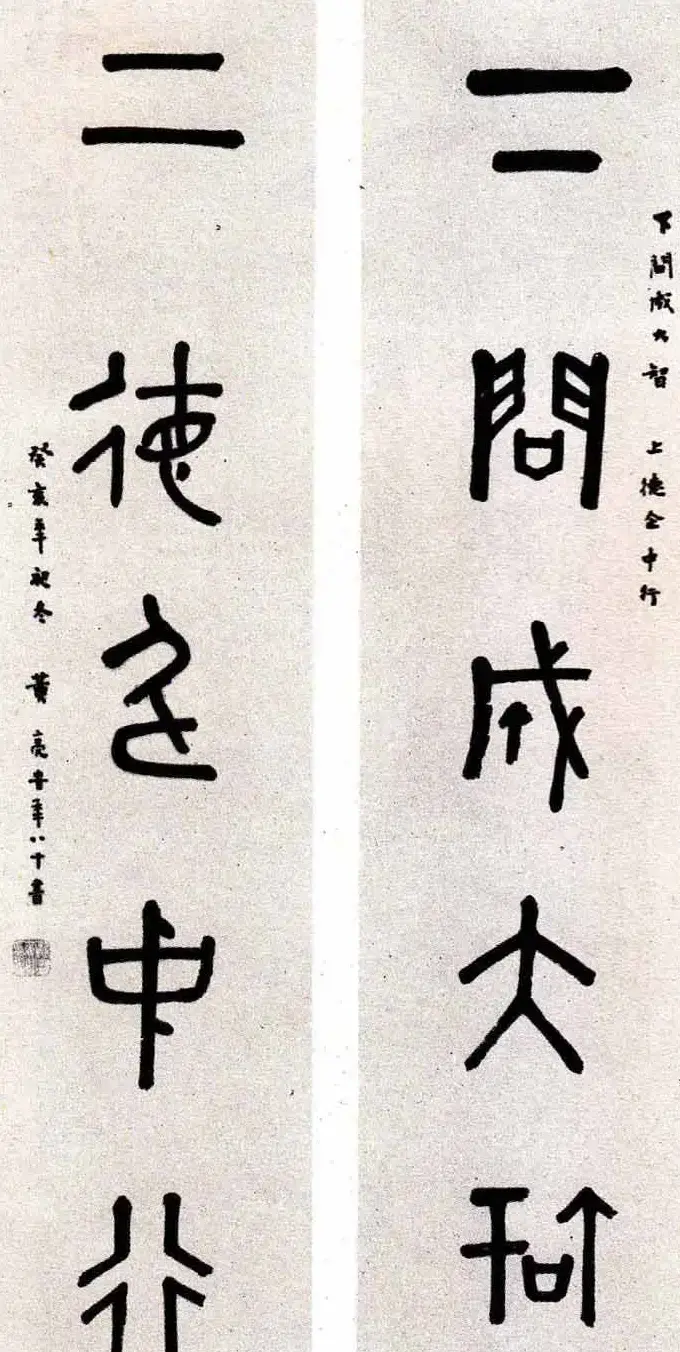 下問成大智
下問成大智 上德企中行
上德企中行
癸亥年初冬 黃亮旹年八十書